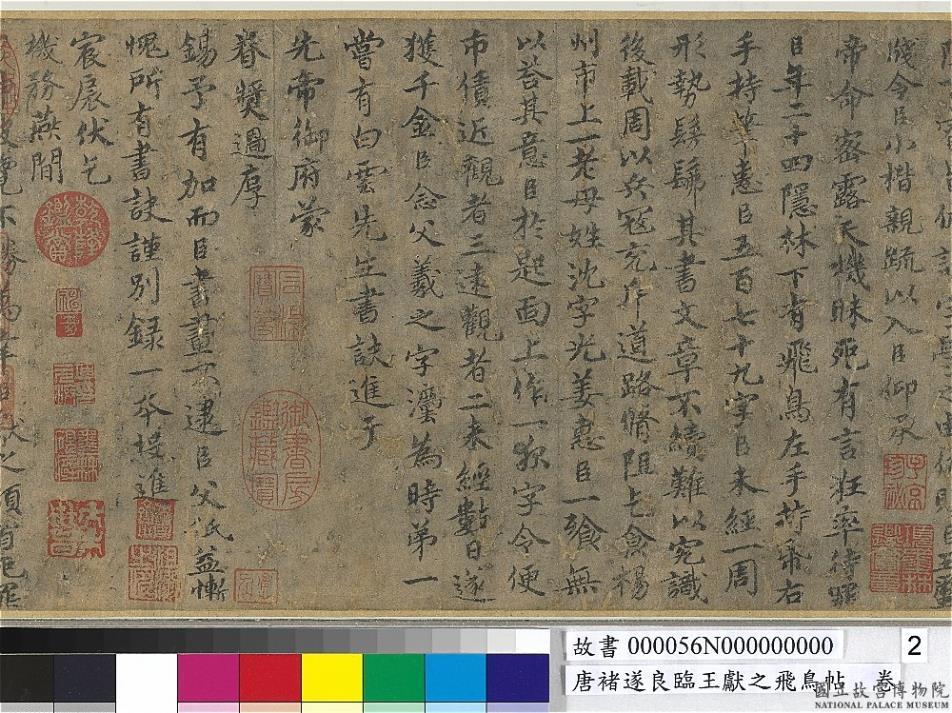 牋令臣小楷親疏以入臣仰承
帝命密露天機昧死有言狂率待罪
臣年二十四隱林下有飛鳥左手持帋右
手持筆惠臣五百七十九字臣未經一周
形勢髣髴其書文章不續難以究識
後載周以兵寇充斥道路脩阻乞食楊
州市上一老母姓沈字光姜惠臣一飡無
以荅其意臣於匙面上作一夜字令便
市債近觀者三遠觀者二未經數日遂
獲千金臣念父羲之字法為時第一
嘗有白雲先生書訣進于
先帝御府蒙
眷奬過厚
錫予有加而臣書畫不逮臣父祇益慚
愧所有書訣謹別錄一本投進
宸扆伏乞
機務燕閒
故書 000056N000000000
2
唐褚遂良臨王獻之飛鳥帖 卷
國立故宮博物院
NATIONAL PALACE MUSEUM